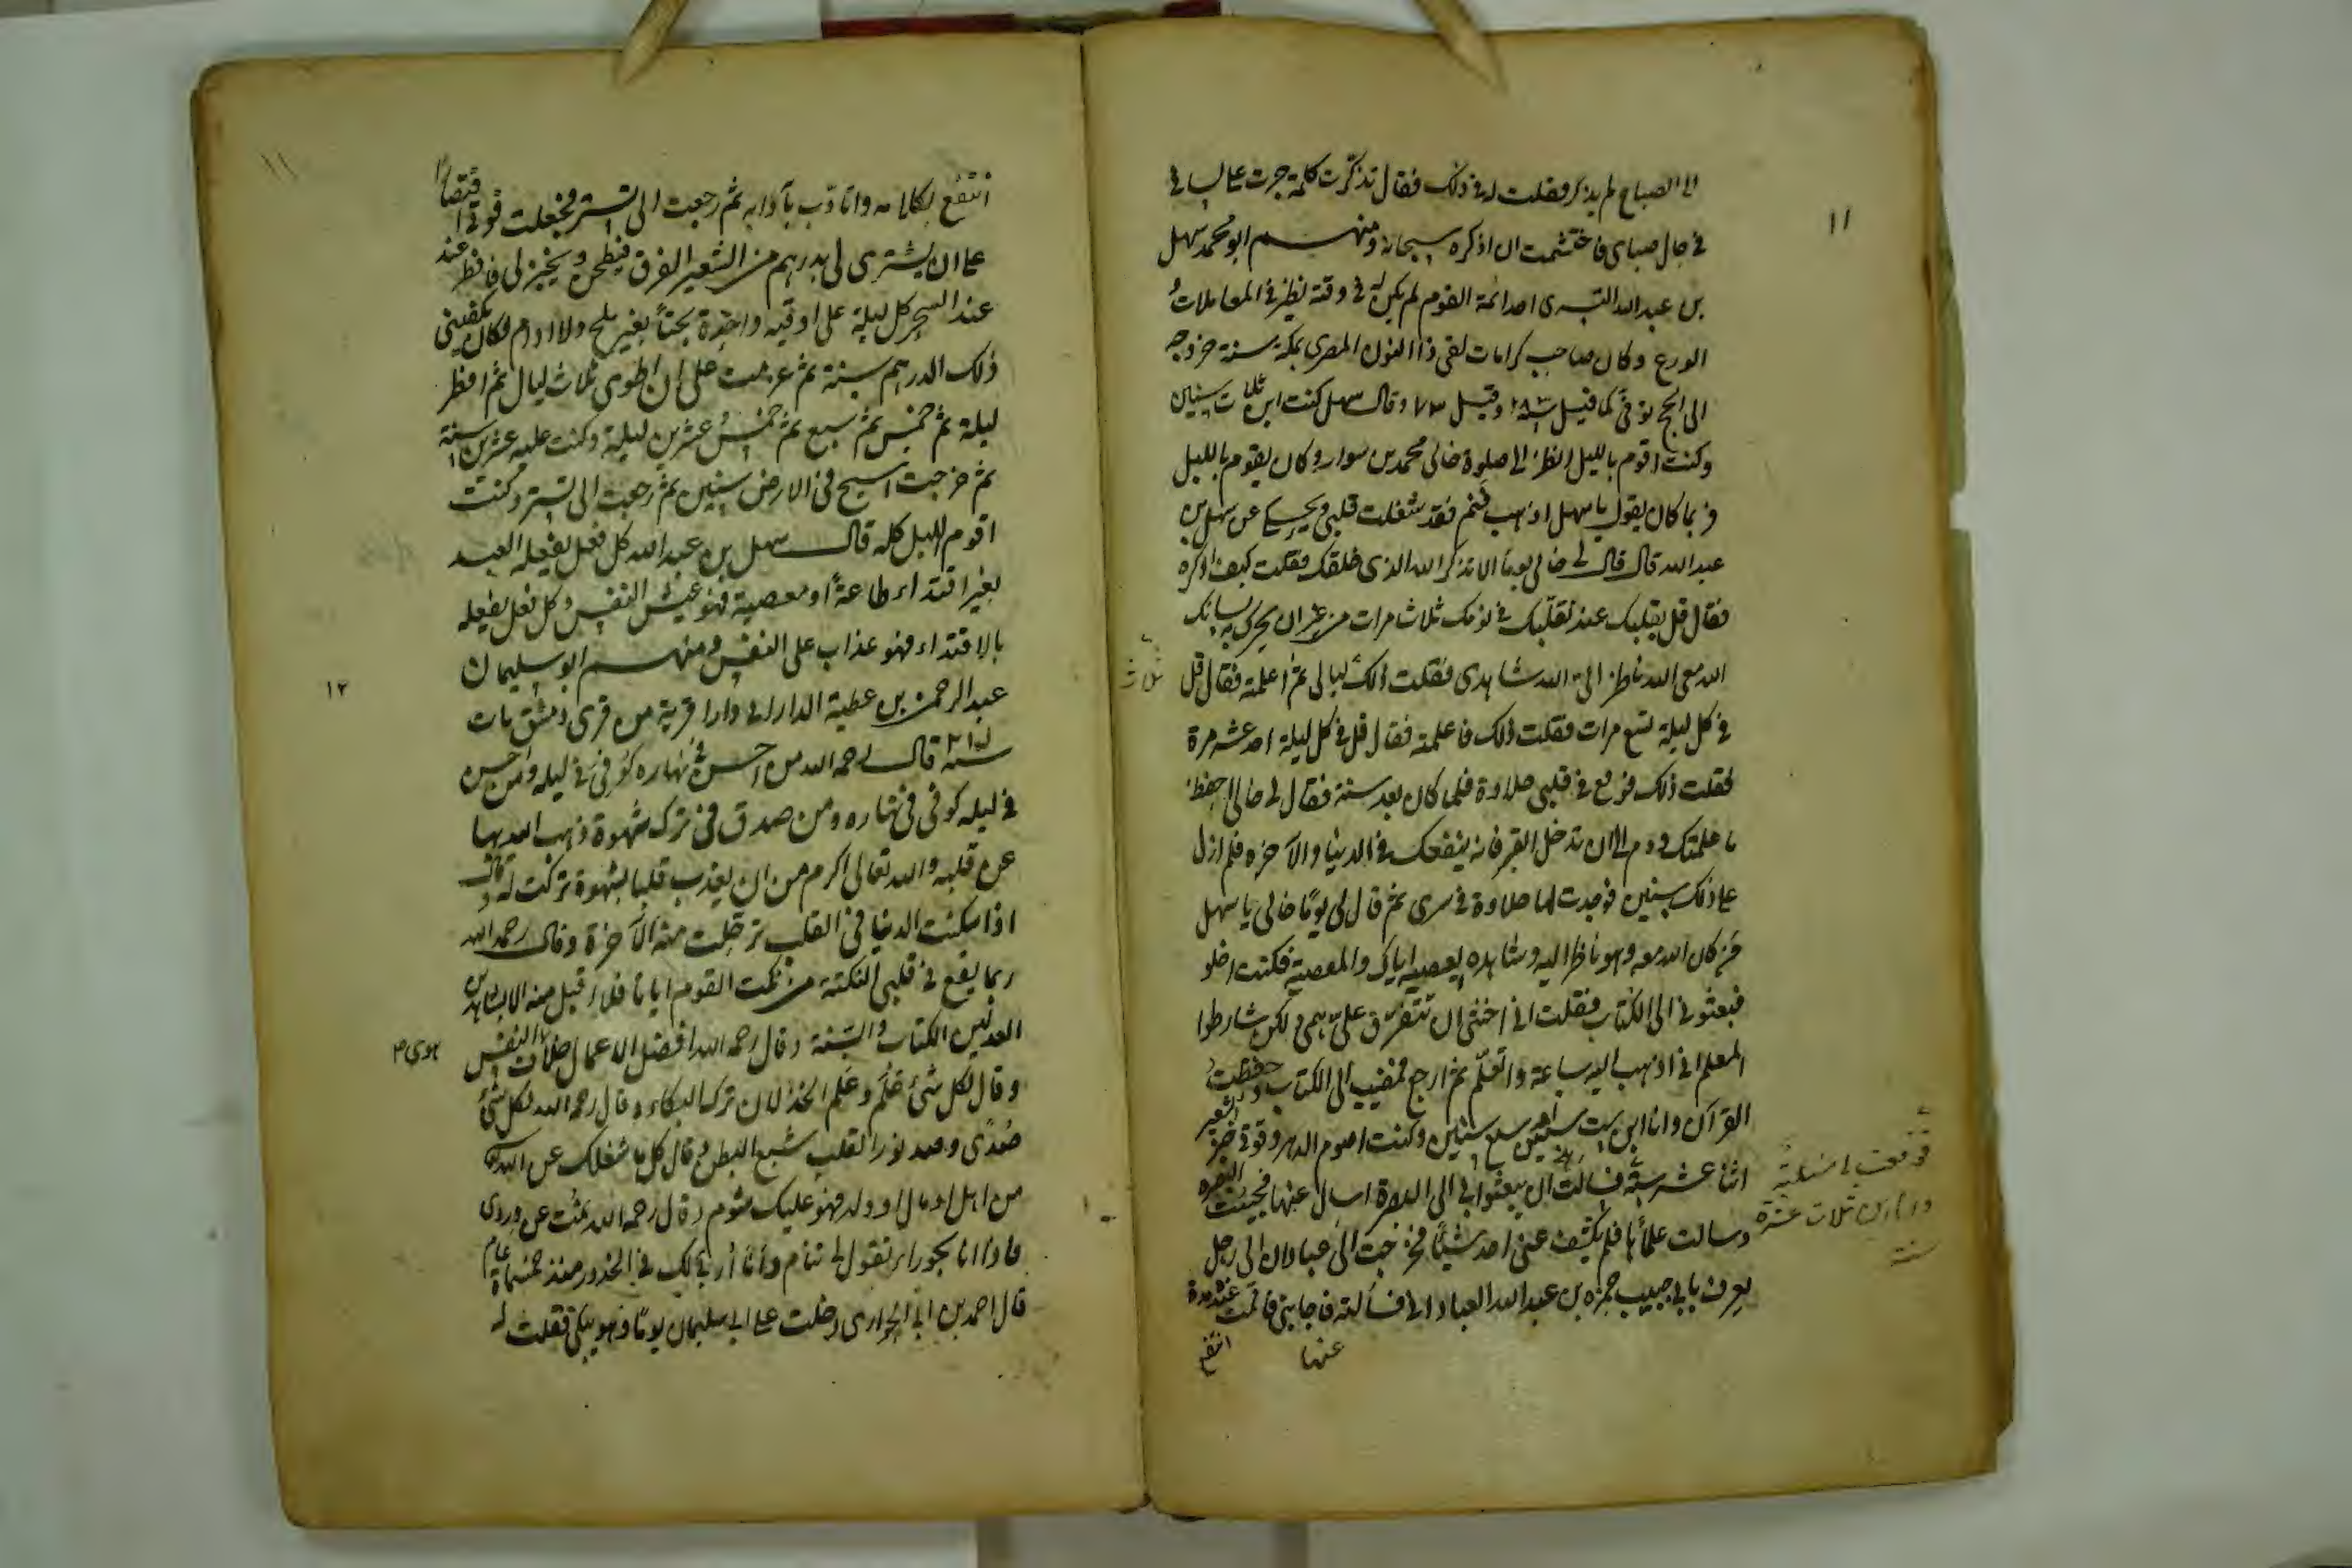 ١١
الى الصباح لم يذكر فقلت له في ذلك فقال تذكرت كلمة جرت على لساني
في حال صباي فاحتشمت ان اذكره سبحانه ومنهم ابو محمد سهل
بن عبد الله التسترى احد ائمة القوم لم يكن له في وقته نظير في المعاملات و
الورع وكان صاحب كرامات لقى ذا النون المصرى بمكة سنة خروجه
الى الحج توفى كما قيل ٢٨٣ وقيل ٧٣ وقال سهل كنت ابن ثلاث سنين
وكنت اقوم بالليل انظر الى صلوة خالى محمد بن سوار وكان يقوم بالليل
فربما كان يقول يا سهل اذهب فنم فقد شغلت قلبي ويحكى عن سهل بن
عبد الله قال قال لى خالى يوما الا تذكر الله الذى خلقك فقلت كيف اذكره
فقال قل بقلبك عند تقلبك في نومك ثلاث مرات من غير ان يحرك به لسانك
الله معى الله ناظر الى الله شاهدى فقلت ذلك ليالى ثم اعلمته فقال قل
ثلاث
في كل ليلة سبع مرات فقلت ذلك فاعلمته فقال قل في كل ليلة احد عشر مرة
فقلت ذلك فوقع في قلبى حلاوة فلما كان بعد سنة فقال لى خالى احفظ
ما علمتك ودم الى ان تدخل القبر فانه ينفعك في الدنيا والآخره فلم ازل
على ذلك سنين فوجدت لها حلاوة في سرى ثم قال لى يوما خالى يا سهل
من كان الله معه وهو ناظر اليه وشاهده يعصيه اياك والمعصية فكنت اخلو
فبعثونى الى الكتاب فقلت انى اخشى ان يتفرق على همى ولكن شارطوا
المعلم انى اذهب اليه ساعة واتعلم ثم ارجع فمضيت الى الكتاب وحفظت
القرآن وانا ابن ست سنين او سبع سنين وكنت اصوم الدهر وقوتى خبز الشعير
اثنا عشر سنة فسالت ان يبعثوا بى الى البصرة اسال عنها فجئت البصره
فوقعت لى مسئلة
وانا ابن ثلاث عشرة
سنة
وسالت علمائها فلم يشف عنى احد شيئا فخرجت الى عبادان الى رجل
يعرف بابى حبيب حمزه بن عبد الله العبادانى فسألته فاجابنى فاقمت عنده مدة
عنها
انتفع
١١
انتفع بكلامه واتادب بآدابه ثم رجعت الى تستر فجعلت قوتى اقتصارا
على ان يشترى لى بدرهم من الشعير الفرق فيطحن ويخبز لى فافطر عند
عند السحر كل ليلة على اوقيه واحدة بحتا بغير ملح ولا ادام فكان يكفينى
ذلك الدرهم سنة ثم عزمت على ان اطوى ثلاث ليال ثم افطر
ليلة ثم خمس ثم سبع ثم خمس عشرين ليلة وكنت عليه عشرين سنة
ثم خرجت اسيح في الارض سنين ثم رجعت الى تستر وكنت
اقوم الليل كله قال سهل بن عبد الله كل فعل يفعله العبد
بغير اقتداء طاعة او معصية فهو عيش النفس وكل فعل يفعله
بالاقتداء فهو عذاب على النفس ومنهم ابو سليمان
١٢
عبد الرحمن بن عطية الدارانى ودارا قرية من قرى دمشق مات
سنة ٢١٥ قال رحمه الله من احسن في نهاره كوفى في ليله ومن احسن
في ليله كوفى في نهاره ومن صدق في ترك شهوة ذهب الله بها
عن قلبه والله تعالى اكرم من ان يعذب قلبا بشهوة تركت له وقال
اذا سكنت الدنيا في القلب ترحلت منه الآخرة وقال رحمه الله
ربما يقع في قلبى النكتة من نكت القوم اياما فلا اقبل منه الا بشاهدين
العدلين الكتاب والسنة وقال رحمه الله افضل الاعمال خلاف النفس
هوى
وقال لكل شئ علم وعلم الخذلان ترك البكاء وقال رحمه الله لكل شئ
صدى وصد نور القلب شبع البطن وقال كل ما شغلك عن الله
من اهل او مال او ولد فهو عليك مشوم وقال رحمه الله نمت عن وردى
فاذا انا بحوراء تقول لى تنام وأنا اربى لك في الخدور منذ خمسمائة عام
قال احمد بن ابى الحوارى دخلت على ابى سليمان يوما وهو يبكى فقلت له